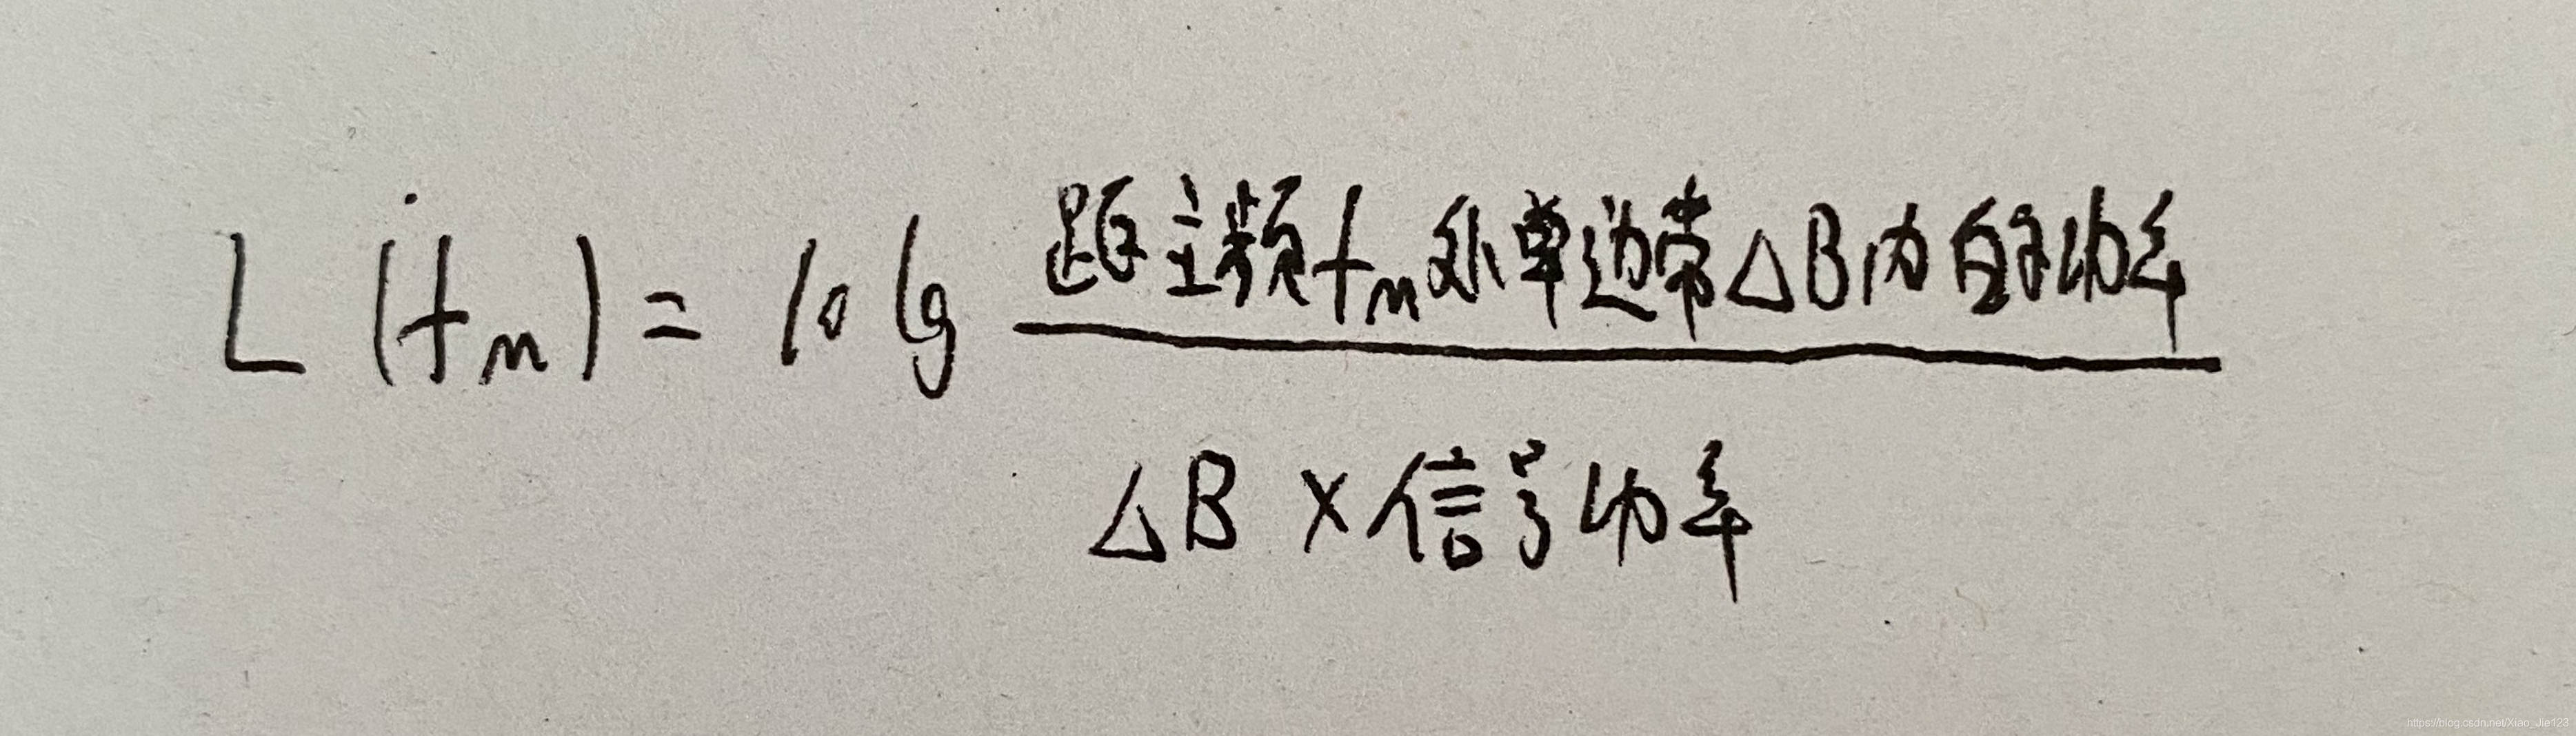 L(fm) = 10 lg 距主频fm处单边带△B内的功率
△B × 信号功率
https://blog.csdn.net/Xiao_Jie123